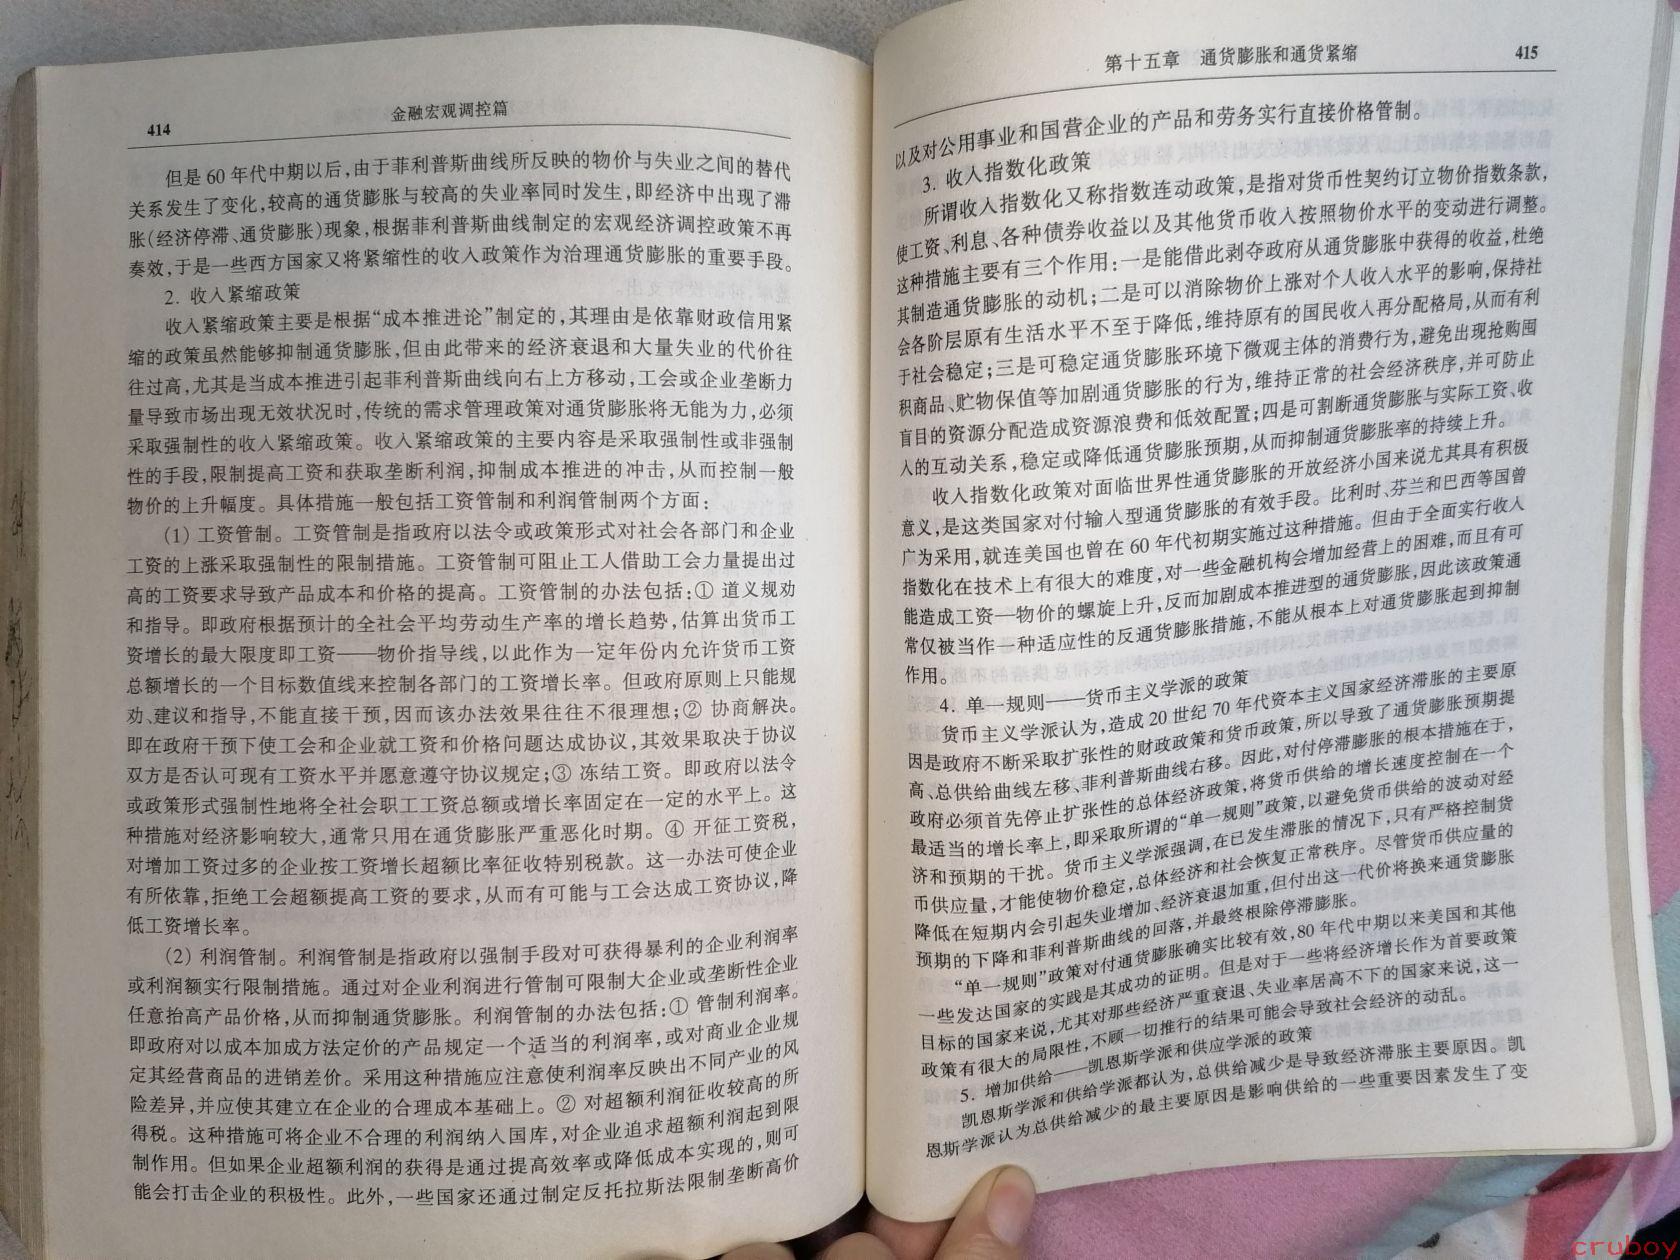 414
金融宏观调控篇
但是 60 年代中期以后,由于菲利普斯曲线所反映的物价与失业之间的替代
关系发生了变化,较高的通货膨胀与较高的失业率同时发生,即经济中出现了滞
胀(经济停滞、通货膨胀)现象,根据菲利普斯曲线制定的宏观经济调控政策不再
奏效,于是一些西方国家又将紧缩性的收入政策作为治理通货膨胀的重要手段。
2. 收入紧缩政策
收入紧缩政策主要是根据“成本推进论”制定的,其理由是依靠财政信用紧
缩的政策虽然能够抑制通货膨胀,但由此带来的经济衰退和大量失业的代价往
往过高,尤其是当成本推进引起菲利普斯曲线向右上方移动,工会或企业垄断力
量导致市场出现无效状况时,传统的需求管理政策对通货膨胀将无能为力,必须
采取强制性的收入紧缩政策。收入紧缩政策的主要内容是采取强制性或非强制
性的手段,限制提高工资和获取垄断利润,抑制成本推进的冲击,从而控制一般
物价的上升幅度。具体措施一般包括工资管制和利润管制两个方面:
(1) 工资管制。工资管制是指政府以法令或政策形式对社会各部门和企业
工资的上涨采取强制性的限制措施。工资管制可阻止工人借助工会力量提出过
高的工资要求导致产品成本和价格的提高。工资管制的办法包括:① 道义规劝
和指导。即政府根据预计的全社会平均劳动生产率的增长趋势,估算出货币工
资增长的最大限度即工资——物价指导线,以此作为一定年份内允许货币工资
总额增长的一个目标数值线来控制各部门的工资增长率。但政府原则上只能规
劝、建议和指导,不能直接干预,因而该办法效果往往不很理想;② 协商解决。
即在政府干预下使工会和企业就工资和价格问题达成协议,其效果取决于协议
双方是否认可现有工资水平并愿意遵守协议规定;③ 冻结工资。即政府以法令
或政策形式强制性地将全社会职工工资总额或增长率固定在一定的水平上。这
种措施对经济影响较大,通常只用在通货膨胀严重恶化时期。④ 开征工资税,
对增加工资过多的企业按工资增长超额比率征收特别税款。这一办法可使企业
有所依靠,拒绝工会超额提高工资的要求,从而有可能与工会达成工资协议,降
低工资增长率。
(2) 利润管制。利润管制是指政府以强制手段对可获得暴利的企业利润率
或利润额实行限制措施。通过对企业利润进行管制可限制大企业或垄断性企业
任意抬高产品价格,从而抑制通货膨胀。利润管制的办法包括:① 管制利润率。
即政府对以成本加成方法定价的产品规定一个适当的利润率,或对商业企业规
定其经营商品的进销差价。采用这种措施应注意使利润率反映出不同产业的风
险差异,并应使其建立在企业的合理成本基础上。② 对超额利润征收较高的所
得税。这种措施可将企业不合理的利润纳入国库,对企业追求超额利润起到限
制作用。但如果企业超额利润的获得是通过提高效率或降低成本实现的,则可
能会打击企业的积极性。此外,一些国家还通过制定反托拉斯法限制垄断高价
第十五章 通货膨胀和通货紧缩
415
以及对公用事业和国营企业的产品和劳务实行直接价格管制。
3. 收入指数化政策
所谓收入指数化又称指数连动政策,是指对货币性契约订立物价指数条款,
使工资、利息、各种债券收益以及其他货币收入按照物价水平的变动进行调整。
这种措施主要有三个作用:一是能借此剥夺政府从通货膨胀中获得的收益,杜绝
其制造通货膨胀的动机;二是可以消除物价上涨对个人收入水平的影响,保持社
会各阶层原有生活水平不至于降低,维持原有的国民收入再分配格局,从而有利
于社会稳定;三是可稳定通货膨胀环境下微观主体的消费行为,避免出现抢购囤
积商品、贮物保值等加剧通货膨胀的行为,维持正常的社会经济秩序,并可防止
盲目的资源分配造成资源浪费和低效配置;四是可割断通货膨胀与实际工资、收
入的互动关系,稳定或降低通货膨胀预期,从而抑制通货膨胀率的持续上升。
收入指数化政策对面临世界性通货膨胀的开放经济小国来说尤其具有积极
意义,是这类国家对付输入型通货膨胀的有效手段。比利时、芬兰和巴西等国曾
广为采用,就连美国也曾在 60 年代初期实施过这种措施。但由于全面实行收入
指数化在技术上有很大的难度,对一些金融机构会增加经营上的困难,而且有可
能造成工资—物价的螺旋上升,反而加剧成本推进型的通货膨胀,因此该政策通
常仅被当作一种适应性的反通货膨胀措施,不能从根本上对通货膨胀起到抑制
作用。
4. 单一规则——货币主义学派的政策
货币主义学派认为,造成 20 世纪 70 年代资本主义国家经济滞胀的主要原
因是政府不断采取扩张性的财政政策和货币政策,所以导致了通货膨胀预期提
高、总供给曲线左移、菲利普斯曲线右移。因此,对付停滞膨胀的根本措施在于,
政府必须首先停止扩张性的总体经济政策,将货币供给的增长速度控制在一个
最适当的增长率上,即采取所谓的“单一规则”政策,以避免货币供给的波动对经
济和预期的干扰。货币主义学派强调,在已发生滞胀的情况下,只有严格控制货
币供应量,才能使物价稳定,总体经济和社会恢复正常秩序。尽管货币供应量的
降低在短期内会引起失业增加、经济衰退加重,但付出这一代价将换来通货膨胀
预期的下降和菲利普斯曲线的回落,并最终根除停滞膨胀。
“单一规则”政策对付通货膨胀确实比较有效,80 年代中期以来美国和其他
一些发达国家的实践是其成功的证明。但是对于一些将经济增长作为首要政策
目标的国家来说,尤其对那些经济严重衰退、失业率居高不下的国家来说,这一
政策有很大的局限性,不顾一切推行的结果可能会导致社会经济的动乱。
5. 增加供给——凯恩斯学派和供应学派的政策
凯恩斯学派和供给学派都认为,总供给减少是导致经济滞胀主要原因。凯
恩斯学派认为总供给减少的最主要原因是影响供给的一些重要因素发生了变
cruboy